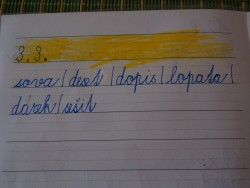 3. 3.
sova/deset/dopis/lopata/
dárek/sešit